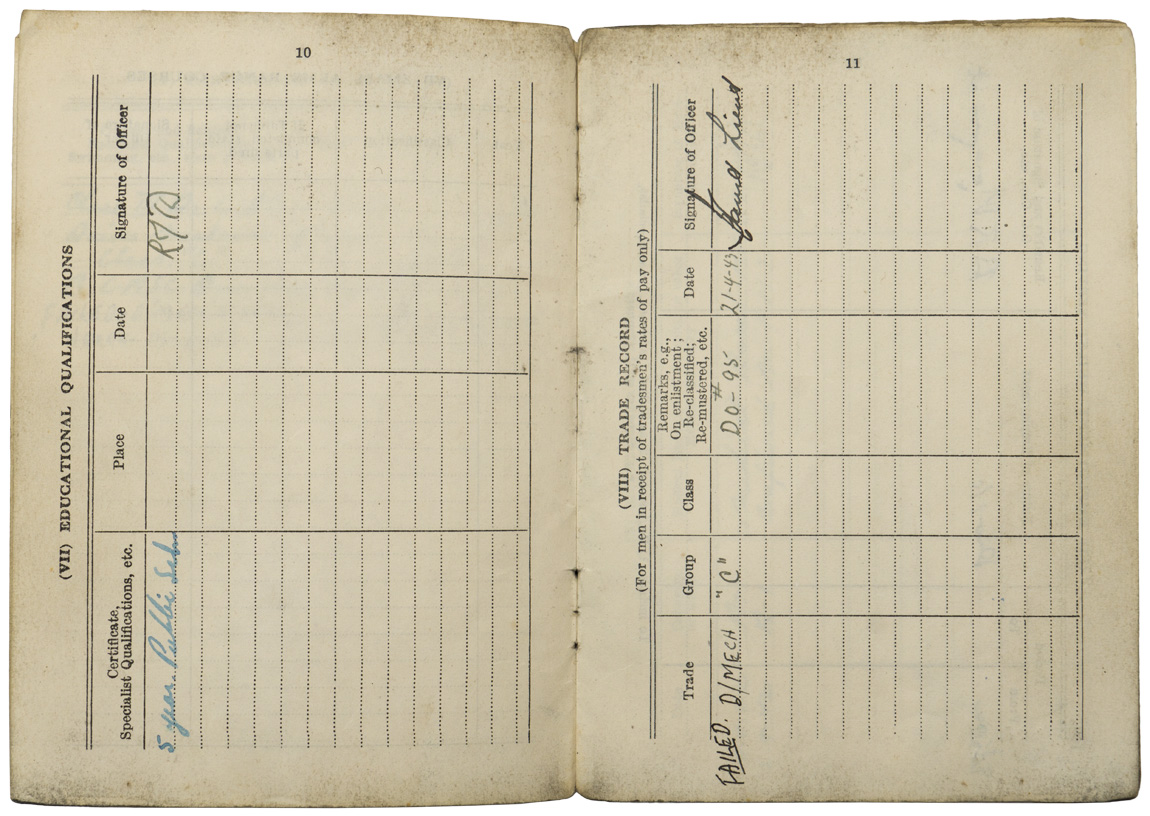 10
(VII) EDUCATIONAL QUALIFICATIONS
Certificate, Specialist Qualifications, etc.
Place
Date
Signature of Officer
5 year. Public Sch.
11
(VIII) TRADE RECORD
(For men in receipt of tradesmen's rates of pay only)
Trade
Group
Class
Remarks, e.g., On enlistment; Re-classified; Re-mustered, etc.
Date
Signature of Officer
FAILED. D/MECH "C" DO-#95 21-4-43 Lieut